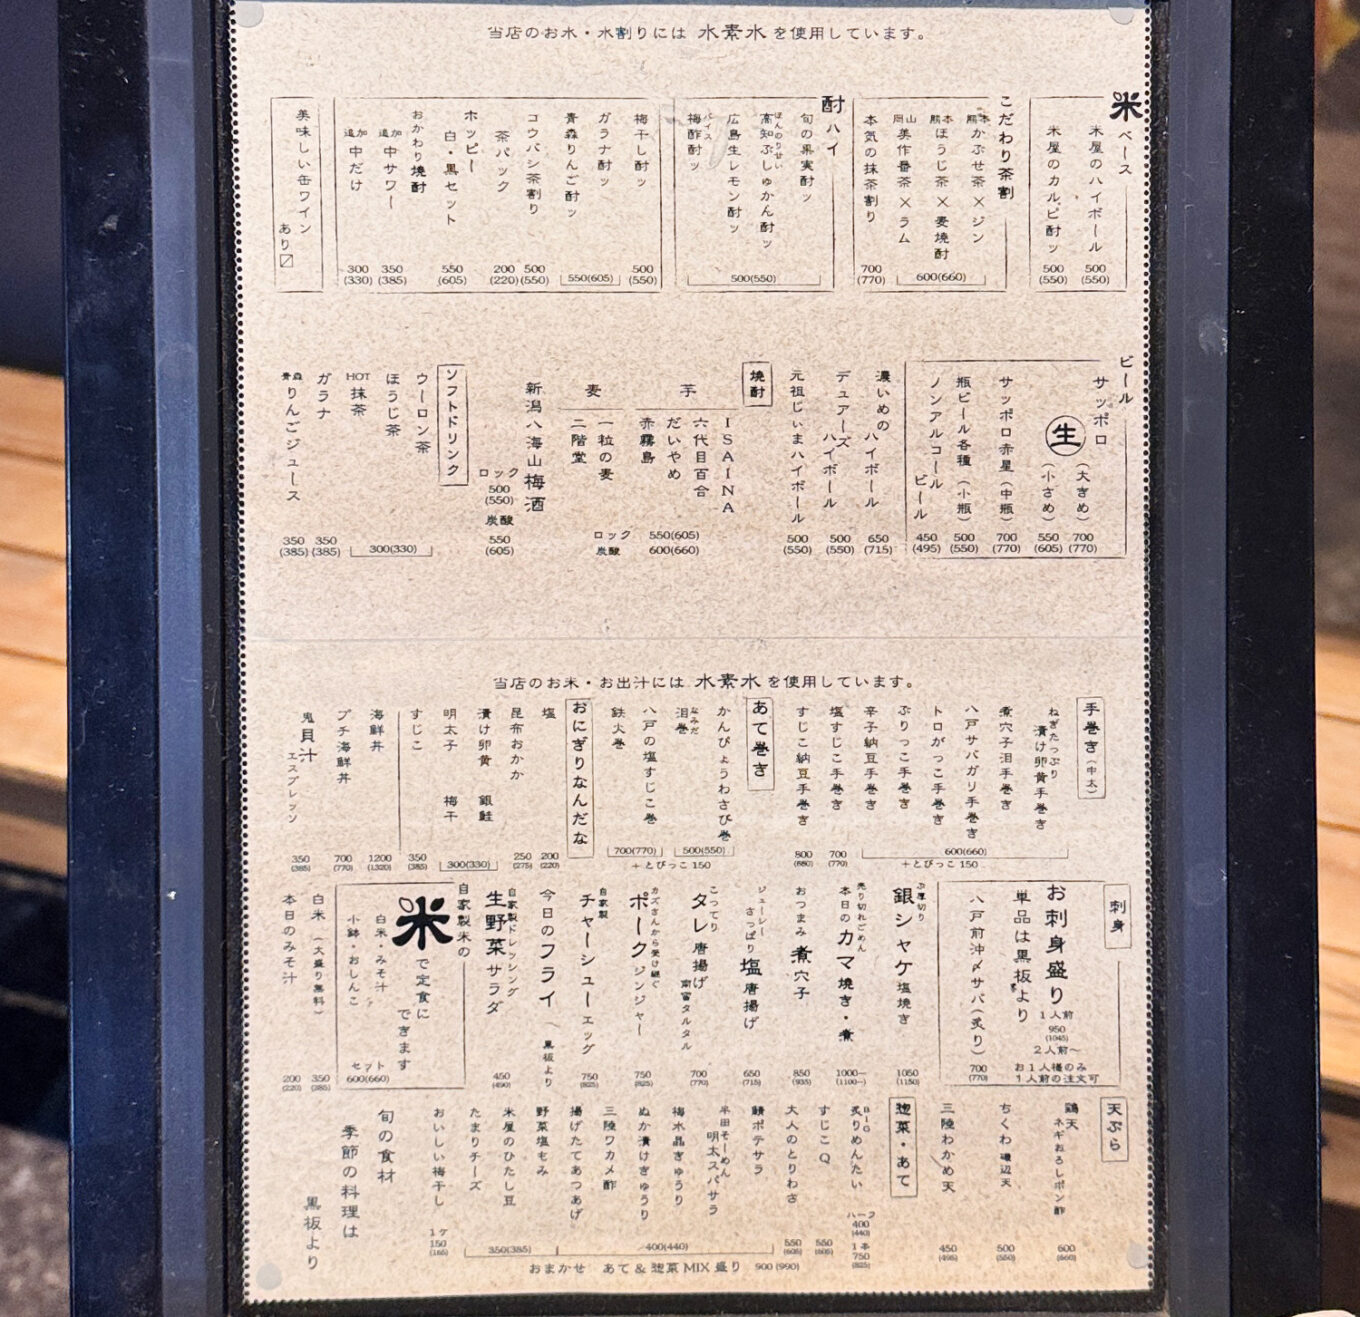 当店のお水・水割りには 水素水 を使用しています。
米ベース
米屋のハイボール 500 (550)
米屋のカルピ酎ッ 500 (550)
こだわり茶割
熊本 かぶせ茶×ジン
熊本 ほうじ茶×麦焼酎
岡山 美作番茶×ラム
600(660)
本気の抹茶割り 700 (770)
酎ハイ
旬の果実酎ッ
ほんのりせい
高知ぶしゅかん酎ッ
広島生レモン酎ッ
バイス
梅酢酎ッ
500(550)
梅干し酎ッ 500 (550)
ガラナ酎ッ
青森りんご酎ッ
550(605)
コウバシ茶割り 500 (550)
茶パック 200 (220)
ホッピー
白・黒セット 550 (605)
おかわり焼酎
追加 中サワー 350 (385)
追加 中だけ 300 (330)
美味しい缶ワイン
あり〼
ビール
サッポロ
生
(大きめ) 700 (770)
(小さめ) 550 (605)
サッポロ赤星(中瓶) 700 (770)
瓶ビール各種(小瓶) 500 (550)
ノンアルコール
ビール 450 (495)
濃いめの
ハイボール 650 (715)
デュアーズ
ハイボール 500 (550)
元祖じぃまハイボール 500 (550)
焼酎
芋
ISAINA
六代目百合
だいやめ
赤霧島
麦
一粒の麦
二階堂
ロック 550(605)
炭酸 600(660)
新潟八海山梅酒
ロック 500 (550)
炭酸 550 (605)
ソフトドリンク
ウーロン茶
ほうじ茶
HOT 抹茶
300(330)
ガラナ 350 (385)
青森 りんごジュース 350 (385)
当店のお米・お出汁には 水素水 を使用しています。
手巻き(中太)
ねぎたっぷり
漬け卵黄手巻き
煮穴子泪手巻き
八戸サバガリ手巻き
トロがっこ手巻き
ぶりっこ手巻き
辛子納豆手巻き
600(660)
+とびっこ150
塩すじこ手巻き 700 (770)
すじこ納豆手巻き 800 (880)
あて巻き
かんぴょうわさび巻
なみだ
泪巻
500(550)
八戸の塩すじこ巻
鉄火巻
700(770)
+とびっこ150
おにぎりなんだな
塩 200 (220)
昆布おかか 250 (275)
漬け卵黄 銀鮭
明太子 梅干
300(330)
すじこ 350 (385)
海鮮丼 1200 (1320)
プチ海鮮丼 700 (770)
鬼貝汁
エスプレッソ 350 (385)
刺身
お刺身盛り
1人前 950 (1045)
2人前〜
お1人様のみ
1人前の注文可
単品は黒板より
八戸前沖〆サバ(炙り) 700 (770)
ぶ厚切り
銀シャケ塩焼き 1050 (1150)
売り切れごめん
本日のカマ焼き・煮 1000〜 (1100〜)
おつまみ 煮穴子 850 (935)
ジューシー
さっぱり塩唐揚げ 650 (715)
こってり
タレ唐揚げ
南蛮タルタル 700 (770)
カズさんから受け継ぐ
ポークジンジャー 750 (825)
自家製
チャーシューエッグ 750 (825)
今日のフライ(黒板より
自家製ドレッシング
生野菜サラダ 450 (490)
自家製米の
米で定食に
できます
白米・みそ汁
小鉢・おしんこ
セット 600(660)
白米(大盛り無料) 350 (385)
本日のみそ汁 200 (220)
天ぷら
鶏天
ネギおろしポン酢 600 (660)
ちくわ磯辺天 500 (550)
三陸わかめ天 450 (495)
惣菜・あて
BIG
炙りめんたい
ハーフ 400 (440)
1本 750 (825)
すじこQ 550 (605)
大人のとりわさ 550 (605)
鯖ポテサラ
半田そーめん
明太スパサラ
梅水晶きゅうり
ぬか漬けきゅうり
三陸ワカメ酢
揚げたてあつあげ
400(440)
野菜塩もみ
米屋のひたし豆
たまりチーズ
350(385)
おいしい梅干し 1ケ 150 (165)
おまかせ あて&惣菜MIX盛り 900 (990)
旬の食材
季節の料理は
黒板より